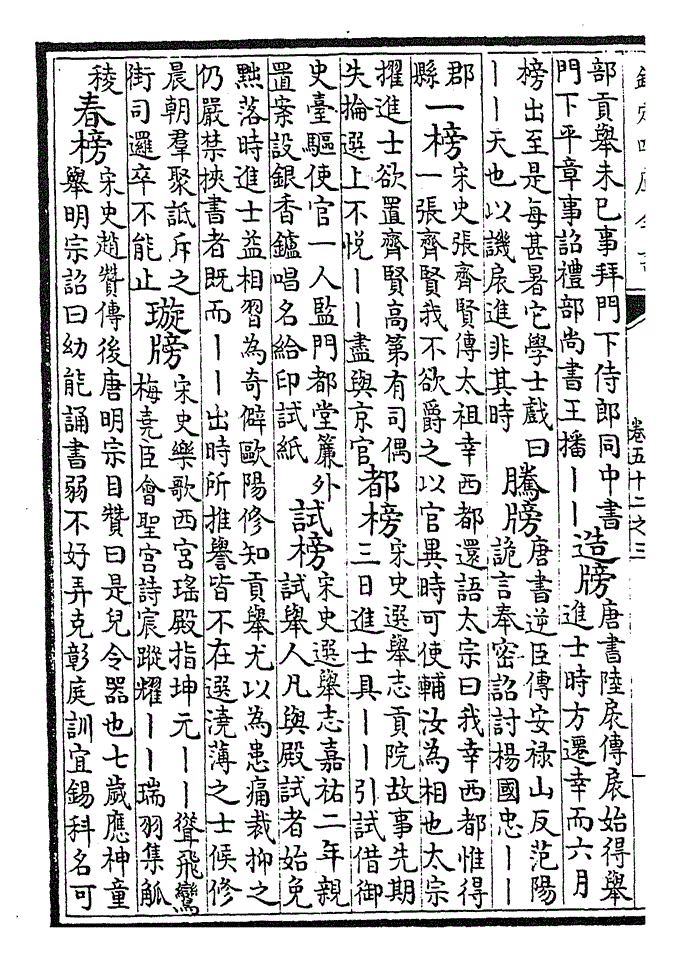 卷五十二之三
部貢舉未已事拜門下侍郎同中書
門下平章事詔禮部尚書王播丨丨
造牓
唐書陸扆傳扆始得舉
進士時方遷幸而六月
榜出至是每甚暑它學士戲曰
丨丨天也以譏扆進非其時
騰牓
唐書逆臣傳安禄山反范陽
詭言奉密詔討楊國忠丨丨
郡
縣
一榜
宋史張齊賢傳太祖幸西都還語太宗曰我幸西都惟得
一張齊賢我不欲爵之以官異時可使輔汝為相也太宗
擢進士欲置齊賢高第有司偶
失掄選上不悅丨丨盡與京官
都榜
宋史選舉志貢院故事先期
三日進士具丨丨引試借御
史臺驅使官一人監門都堂簾外
置案設銀香鑪唱名給印試紙
試榜
宋史選舉志嘉祐二年親
試舉人凡與殿試者始免
黜落時進士益相習為奇僻歐陽修知貢舉尤以為患痛裁抑之
仍嚴禁挾書者既而丨丨出時所推譽皆不在選澆薄之士候修
晨朝羣聚詆斥之
街司邏卒不能止
璇牓
宋史樂歌西宮瑤殿指坤元丨丨聳飛鸞
梅堯臣會聖宮詩宸蹤耀丨丨瑞羽集觚
稜
春榜
宋史趙贊傳後唐明宗目贊曰是兒令器也七歲應神童
舉明宗詔曰幼能誦書弱不好弄克彰庭訓宜錫科名可